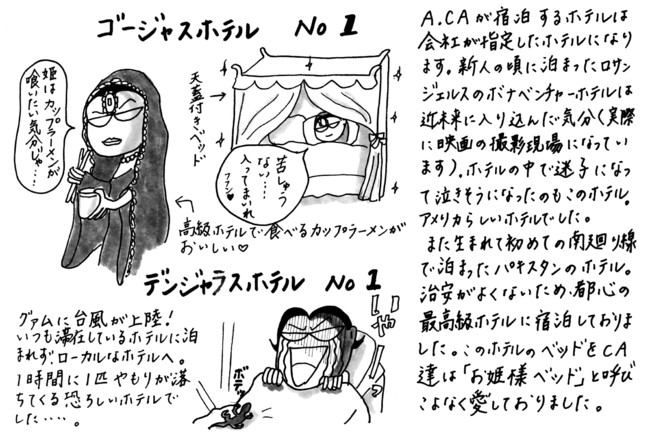 ゴージャスホテル No 1
姫はカップラーメンが
喰いたい気分じゃ…
天蓋付きベッド
苦しゅう
ない…
入ってまいれ
ファン♡
高級ホテルで食べるカップラーメンが
おいしい♡
デンジャラスホテル No 1
グァムに台風が上陸!
いつも滞在しているホテルに泊
まれず、ローカルなホテルへ。
1時間に1匹やもりが落
ちてくる恐ろしいホテルで
した…。
いやー
ボテッ
A.CAが宿泊するホテルは
会社が指定したホテルになり
ます。新人の頃に泊まったロサン
ジェルスのボナベンチャーホテルは
近未来に入り込んだ気分(実際
に映画の撮影現場になってい
ます)。ホテルの中で迷子になっ
て泣きそうになったのもこのホテル。
アメリカらしいホテルでした。
また生まれて初めての南廻り線
で泊まったパキスタンのホテル。
治安がよくないため、都心の
最高級ホテルに宿泊しておりま
した。このホテルのベッドをCA
達は「お姫様ベッド」と呼び
こよなく愛しておりました。